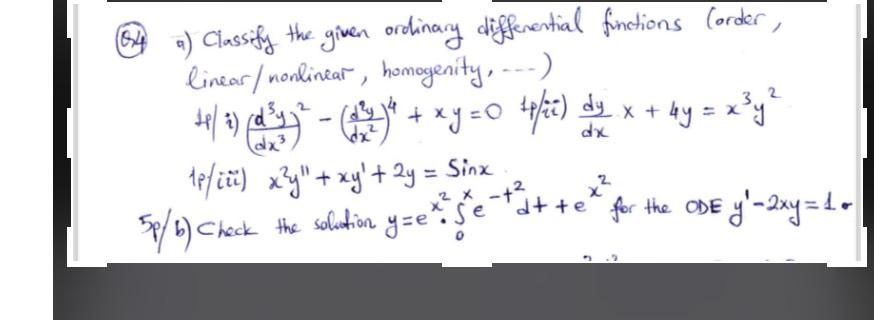 Q4 a) Classify the given ordinary differenential functions (order,
linear/nonlinear, homogenity, ---)
1p/ i) (d³y/dx³)² - (d²y/dx²)⁴ + xy = 0 1p/ii) dy/dx x + 4y = x³y²
1p/iii) x²y" + xy' + 2y = Sinx
5p/ b) Check the solution y = e^x² . ∫₀^x e^-t² dt + e^x² for the ODE y' - 2xy = 1.